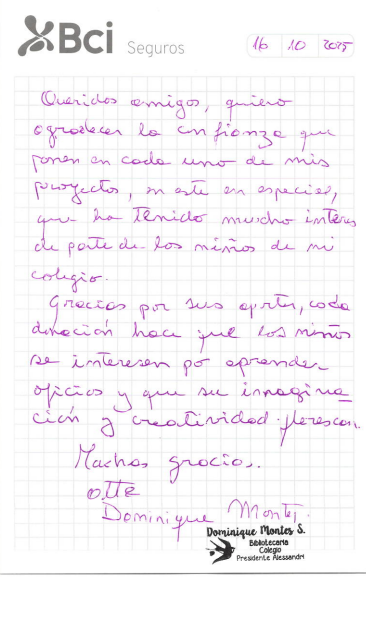 Bci Seguros
16 10 2025
Queridos amigos, quiero
agradecer la confianza que
ponen en cada uno de mis
proyectos, en este en especial,
que ha tenido mucho interes
de parte de los niños de mi
colegio.
Gracias por sus aportes, cada
donación hace que los niños
se interesen po aprender
oficios y que su imagina
ción y creatividad florescan.
Muchas gracias.
Atte
Dominique Montes.
Dominique Montes S.
Bibliotecaria
Colegio
Presidente Alessandri